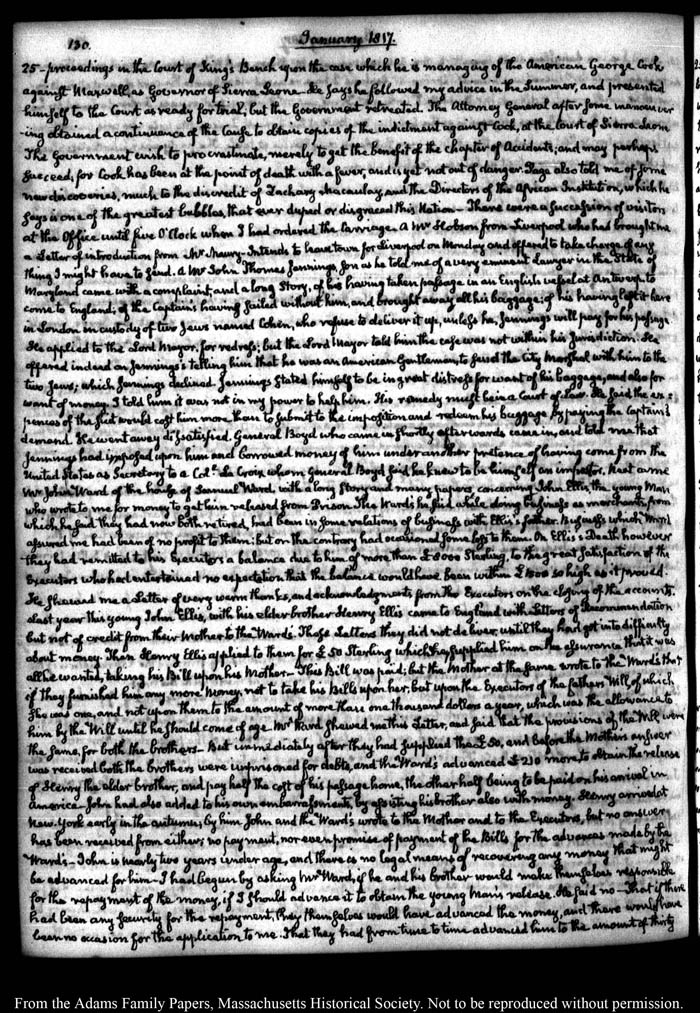 130.
January 1817.
25 - proceedings in the Court of King's Bench upon the case which he is managing of the American George Cook
against Maxwell, as Governor of Sierra Leone - He says he followed my advice in the Summer, and presented
himself to the Court as ready for trial; but the Government retreated. The Attorney General after some manoeuvr-
-ing obtained a continuance of the Cause to obtain copies of the indictment against Cook, at the Court of Sierra Leone
The Government wish to procrastinate, merely to get the benefit of the chapter of Accidents; and may perhaps
succeed; for Cook has been at the point of death with a fever, and is yet not out of danger. Page also told me of some
new discoveries, much to the discredit of Zachary Macaulay, and the Directors of the African Institution, which he
says is one of the greatest bubbles, that ever duped or disgraced this Nation - There were a succession of visitors
at the Office until five O'Clock when I had ordered the Carriage. A Mr Hobson from Liverpool who had brought me
a Letter of introduction from Mr Maury - Intends to leave town for Liverpool on Monday and offered to take charge of any
thing I might have to send. A Mr John Thomas Jennings, Son as he told me of a very eminent Lawyer in the State of
Maryland came with a complaint, and a long Story, of his having taken passage in an English vessel at Antwerp to
come to England; of the Captain's having sailed without him, and brought away all his baggage; of his having left it here
in London in custody of two Jews named Cohen, who refuse to deliver it up, unless he, Jennings will pay for his passage
He applied to the Lord Mayor, for redress; but the Lord Mayor told him the case was not within his Jurisdiction. He
offered indeed on Jennings's telling him that he was an American Gentleman, to send the City Marshal with him to the
two Jews; which Jennings declined. Jennings stated himself to be in great distress for want of his baggage, and also for
want of money. I told him it was not in my power to help him. His remedy must be in a Court of law. He said the ex-
pences of the suit would cost him more than to submit to the imposition and redeem his baggage by paying the Captain's
demand. He went away dissatisfied. General Boyd who came in shortly afterwards came in, and told me that
Jennings had imposed upon him and borrowed money of him under another pretence of having come from the
United States as Secretary to a Coll. La Croix whom General Boyd said he knew to be himself an impostor. Next came
Mr John Ward of the house of Samuel Ward, with a long Story and many papers concerning John Ellis, the young Man
who wrote to me for money to get him released from Prison. The Wards he said while doing business as merchants, from
which he said they had now both retired, had been in some relations of business with Ellis's father. Business which Ward
assured me had been of no profit to them; but on the contrary had occasioned some loss to them. On Ellis's Death however
they had remitted to his Executors a balance due to him of more than £8000 Sterling, to the great satisfaction of the
Executors who had entertained no expectation that the balance would have been within £1500 so high as it proved.
He shewed me a Letter of very warm thanks, and acknowledgments from the Executors on the closing of the accounts.
Last year this young John Ellis, with his elder brother Henry Ellis came to England with Letters of Recommendation
but not of credit from their Mother to the Wards. These Letters they did not deliver, until they had got into difficulty
about money. Then Henry Ellis applied to them for £50 Sterling which they supplied him on the assurance that it was
all he wanted, taking his Bill upon his Mother - This Bill was paid; but the Mother at the same wrote to the Wards that
if they furnished him any more Money, not to take his Bills upon her, but upon the Executors of the father's Will, of which
She was one, and not upon them to the amount of more than one thousand dollars a year, which was the allowance to
him by the Will until he should come of age. Mr Ward shewed me this Letter, and said that the provisions of the Will, were
the same, for both the brothers - But immediately after they had supplied the £50, and before the Mother's answer
was received both the brothers were imprisoned for debts, and the Wards advanced £230 more, to obtain the release
of Henry the elder brother, and pay half the cost of his passage home, the other half being to be paid on his arrival in
America. John had also added to his own embarrassments, by assisting his brother also with money. Henry arrived at
New-York early in the autumn; by him John and the Wards wrote to the Mother and to the Executors, but no answer
has been received from either; no payment, nor even promise of payment of the Bills for the advances made by the
Wards - John is nearly two years under age, and there is no legal means of recovering any money that might
be advanced for him - I had begun by asking Mr Ward, if he and his brother would make themselves responsible
for the repayment of the money, if I should advance it to obtain the young Man's release. He said no - That if there
had been any security for the repayment, they themselves would have advanced the money, and there would have
been no occasion for the application to me. That they had from time to time advanced him to the amount of thirty
From the Adams Family Papers, Massachusetts Historical Society. Not to be reproduced without permission.